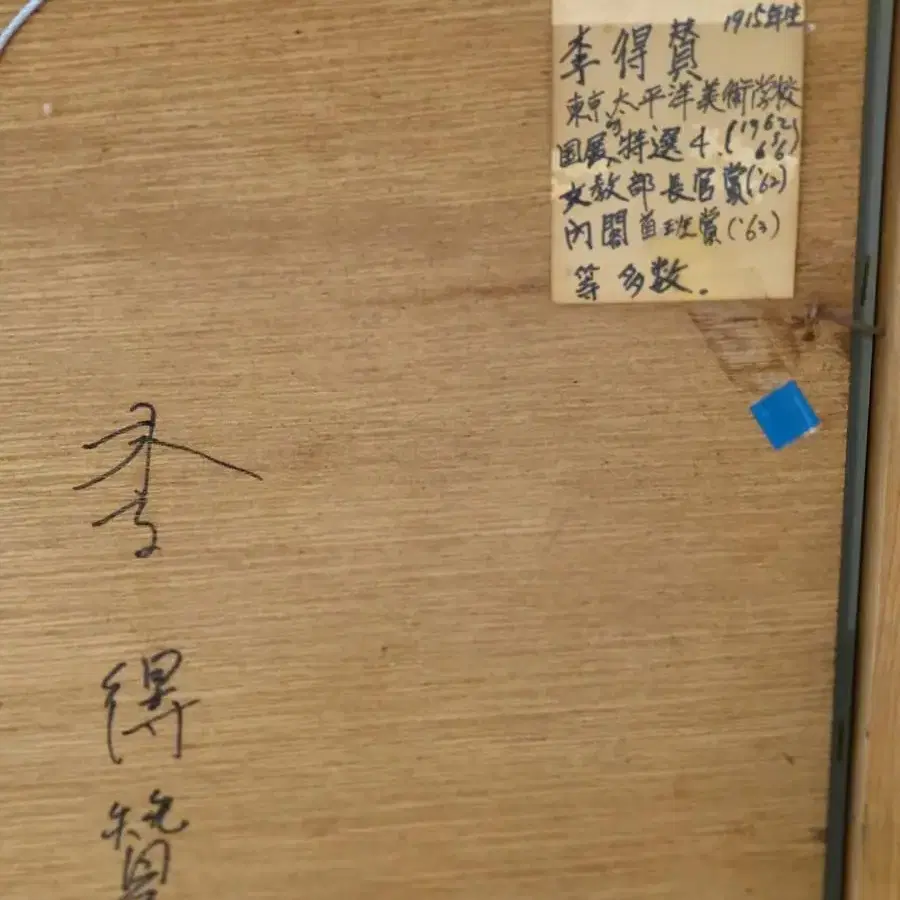 1915年生
李得贊
東京太平洋美術学校
国展特選4.(1962
66)
文教部長官賞('62)
內閣首班賞('63)
等多数.
李
得
贊